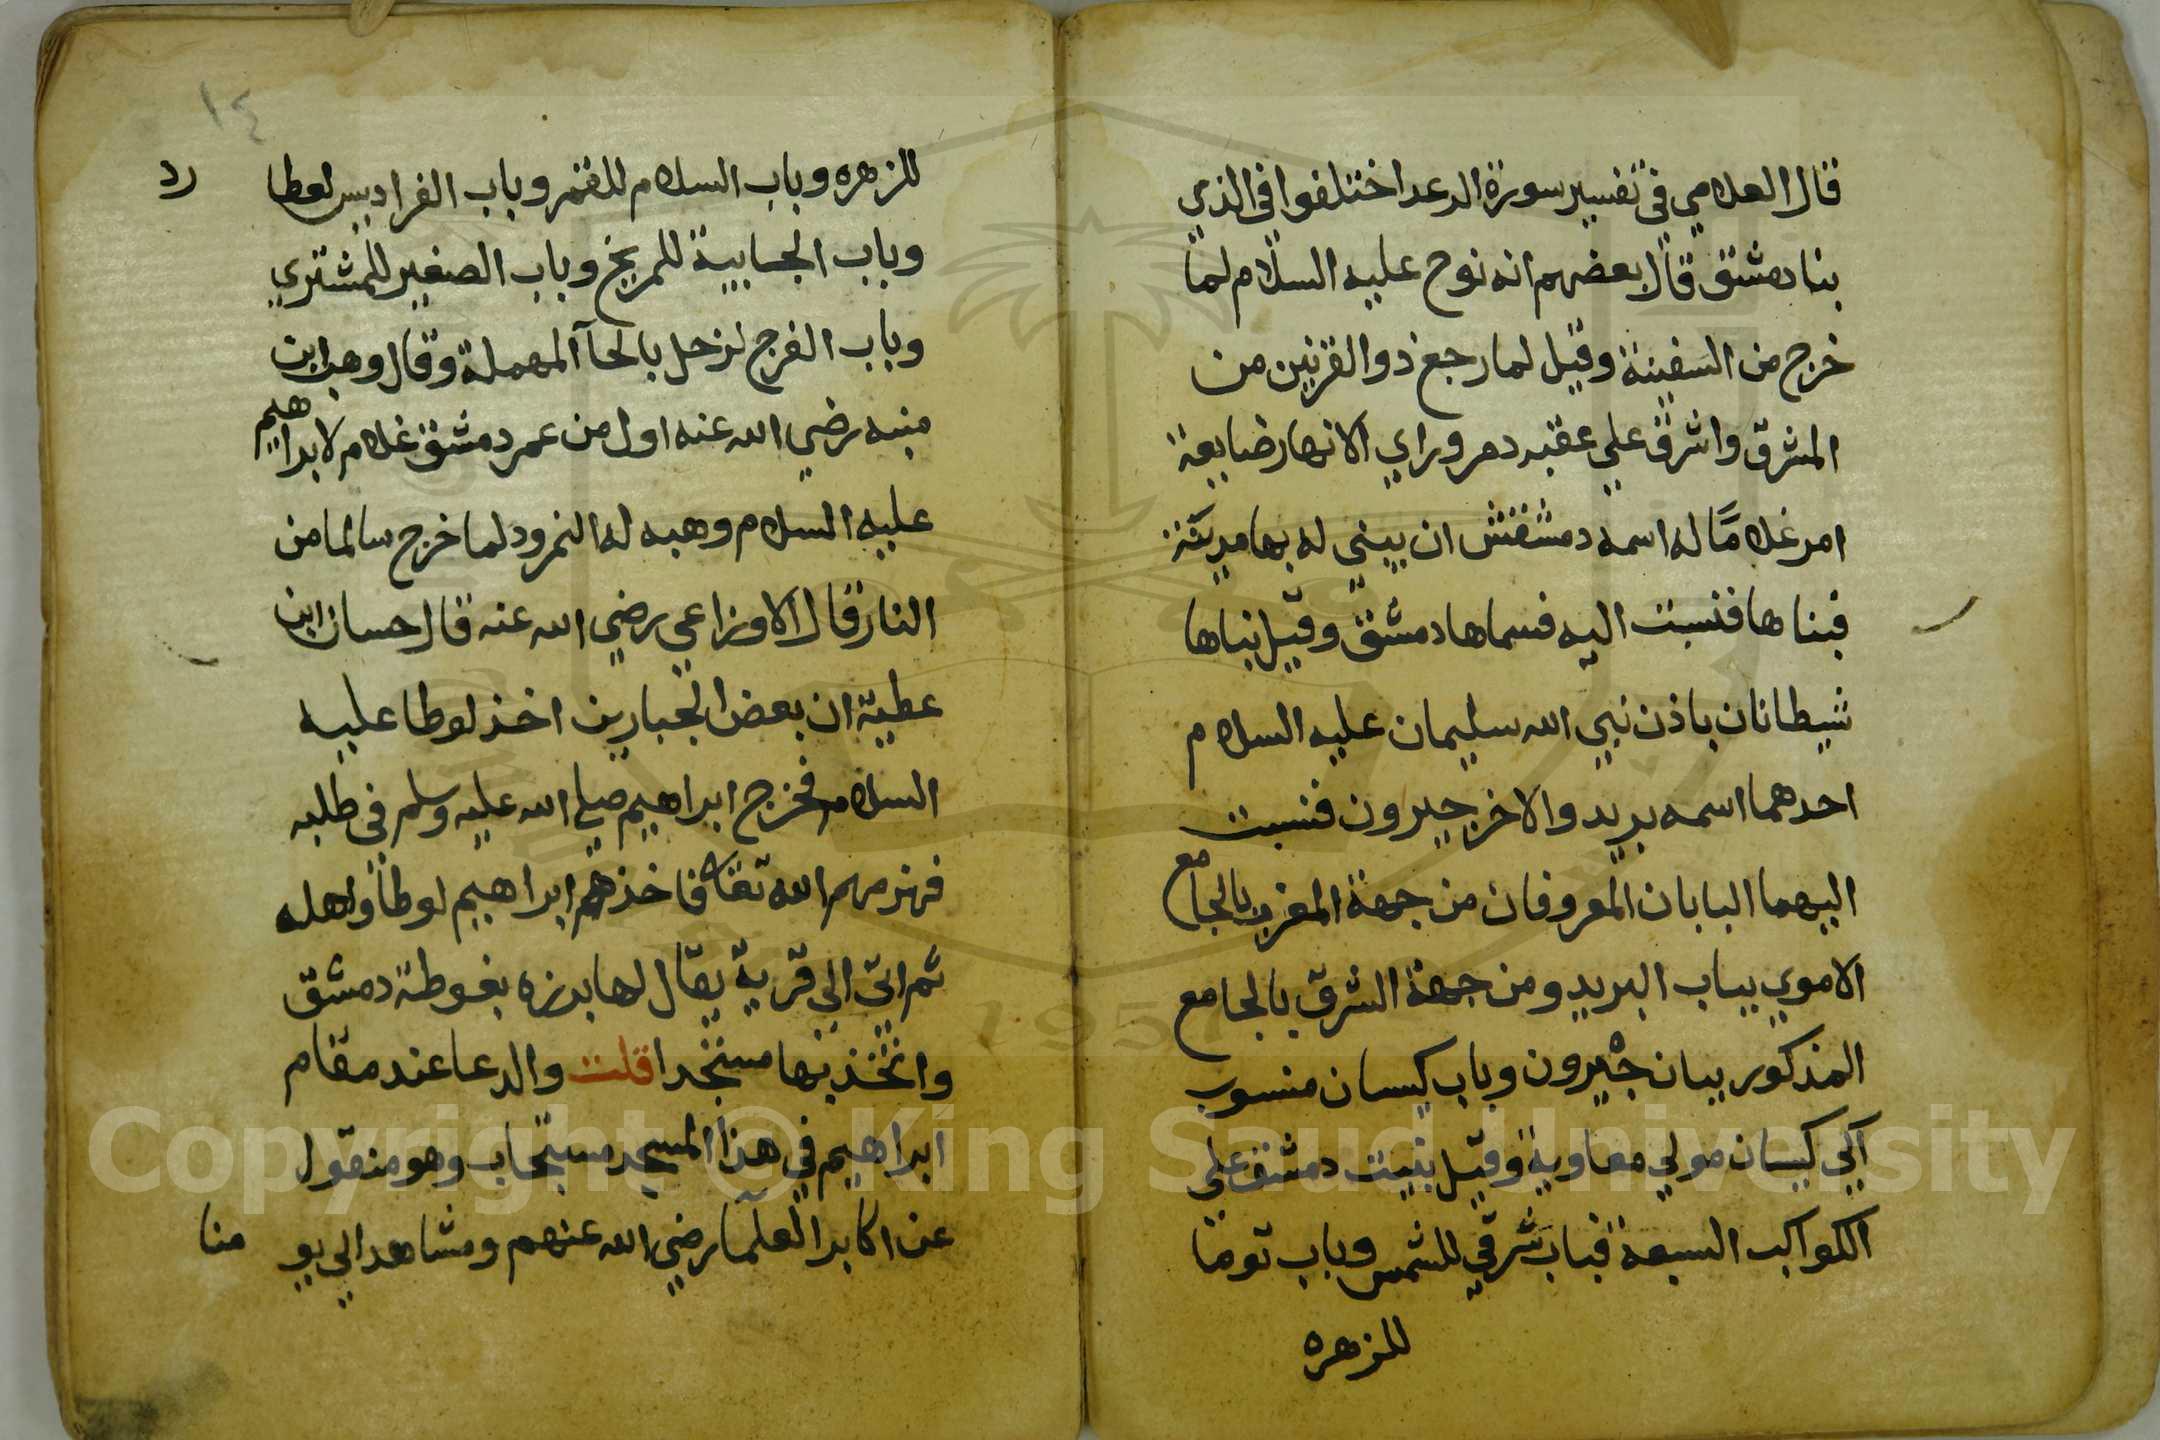 قال العلامي في تفسير سورة الرعد اختلفوا في الذي
بنا دمشق قال بعضهم انه نوح عليه السلام لما
خرج من السفينة وقيل لما رجع ذوالقرنين من
المشرق واشرق علي عقبه دمر وراي الانهار ضايعة
امر غلامًا له اسمه دمشقش ان يبني له بها مدينة
فبناها فنسبت اليه فسماها دمشق وقيل بناها
شيطانان باذن نبي الله سليمان عليه السلام
احدهما اسمه بريد والاخر جيرون فنسبت
اليهما البابان المعروفان من جهة المغرب بالجامع
الاموي بباب البريد ومن جهة الشرق بالجامع
المذكور ببان جيرون وباب كيسان منسوب
الي كيسان مولي معاوية وقيل بنيت دمشق علي
الكواكب السبعة فباب شرقي للشمس وباب توما
للزهره
١٤
للزهره وباب السلام للقمر وباب الفراديس لعطا رد
وباب الجابية للمريخ وباب الصغير للمشتري
وباب الفرج لزحل بالحآ المهملة وقال وهب ابن
منبه رضي الله عنه اول من عمر دمشق غلام لابراهيم
عليه السلام وهبه له النمرود لما خرج سالما من
النار قال الاوزاعي رضي الله عنه قال حسان ابن
عطية ان بعض الجبارين اخذ لوطا عليه
السلام فخرج ابراهيم صلي الله عليه وسلم في طلبه
فهزمهم الله تعالى فاخذهم ابراهيم لوطا واهله
ثم اتي الي قرية يقال لها برزه بغوطة دمشق
واتخذ بها مسجدا قلت والدعا عند مقام
ابراهيم في هذا المسجد مستجاب وهو منقول
عن اكابر العلمآ رضي الله عنهم ومشاهد الي يو منا
Copyright © King Saud University
1957